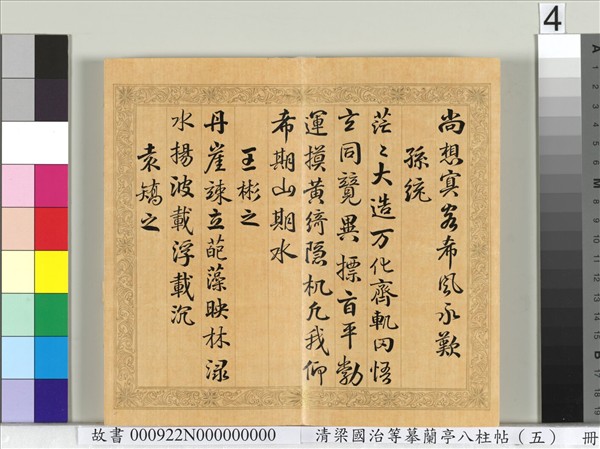 4
尚想冥客希風永歎
孫統
茫〻大造万化齊軌罔悟
玄同競異摽旨平勃
運摸黄綺隐机凡我仰
希期山期水
王彬之
丹崖竦立葩藻映林渌
水揚波載浮載沉
袁矯之
故書 000922N000000000 清梁國治等摹蘭亭八柱帖（五） 冊